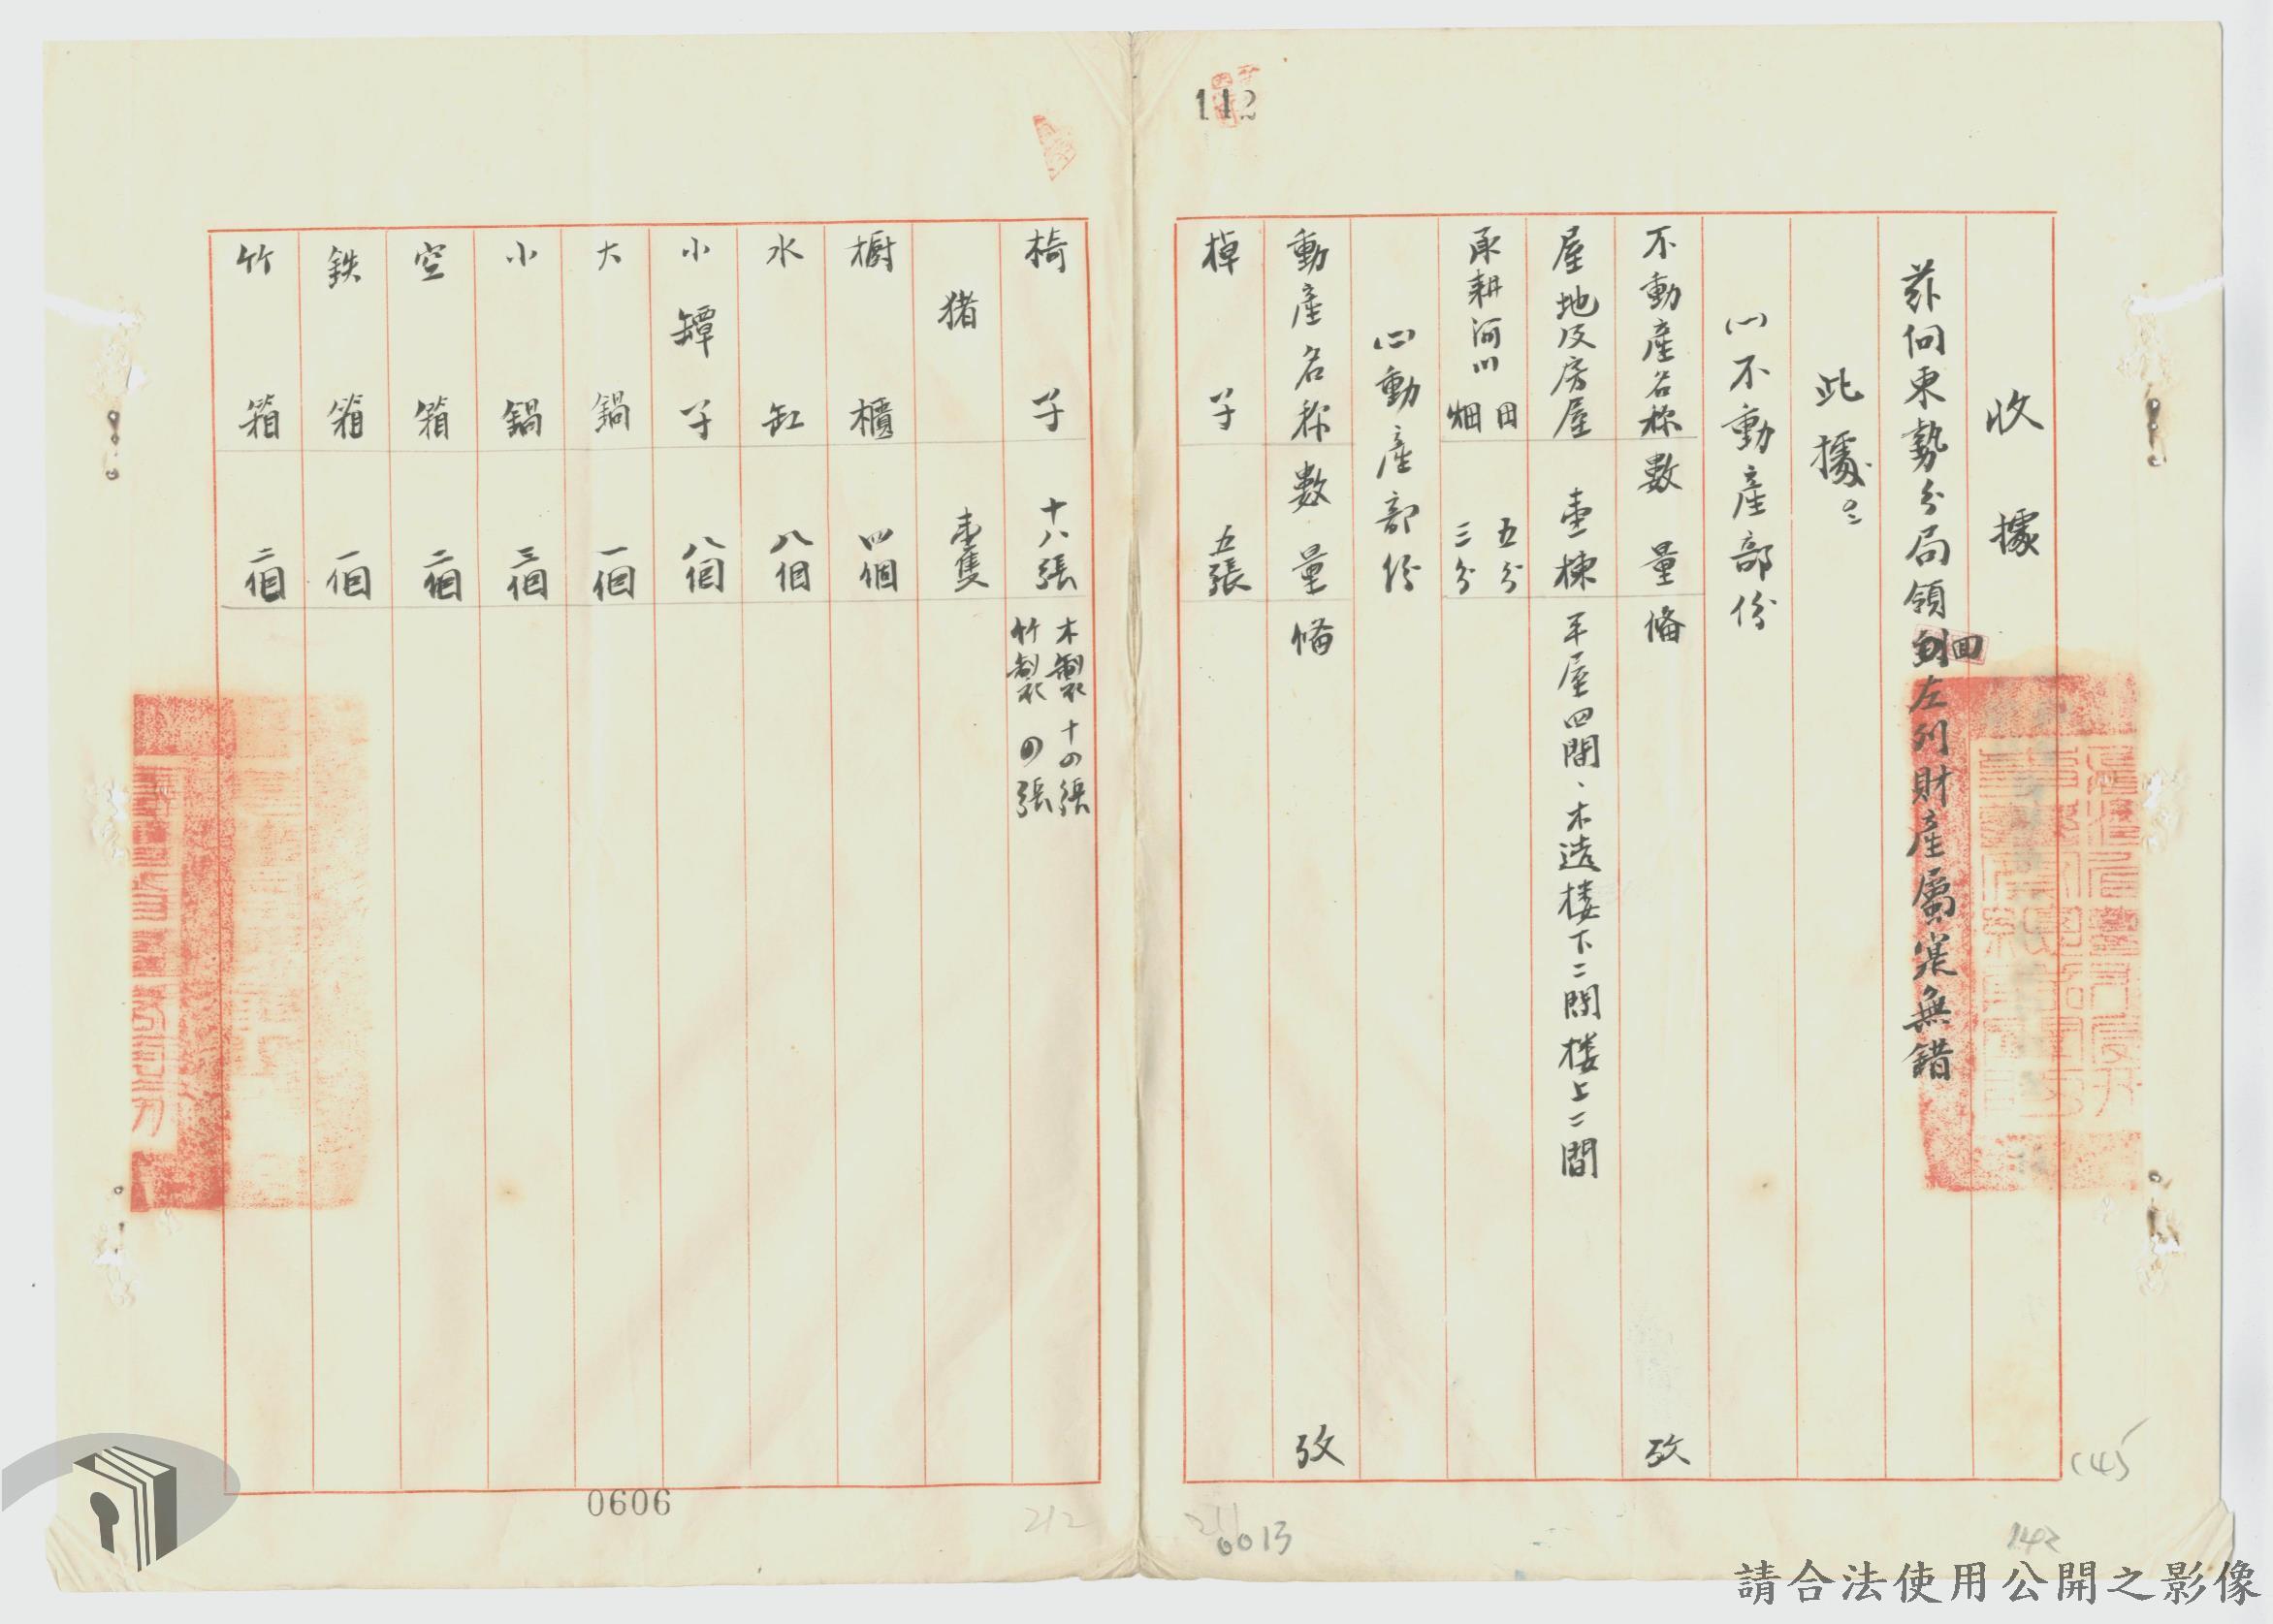 142
收據
茲向東勢分局領回左列財產屬実無錯
此據
(一)不動產部份
不動產名称 數量 備 攷
屋地及房屋 壹棟 平屋四間、木造楼下二間楼上二間
承耕河川田 五分
畑 三分
(二)動產部份
動產名称 數量 備 攷
棹子 五張
椅子 十八張 木製十四張
竹製四張
猪 壹隻
櫥櫃 四個
水缸 八個
小罈子 八個
大鍋 一個
小鍋 三個
空箱 二個
鉄箱 一個
竹箱 二個
0606
212
211
0013
142
(4)
請合法使用公開之影像